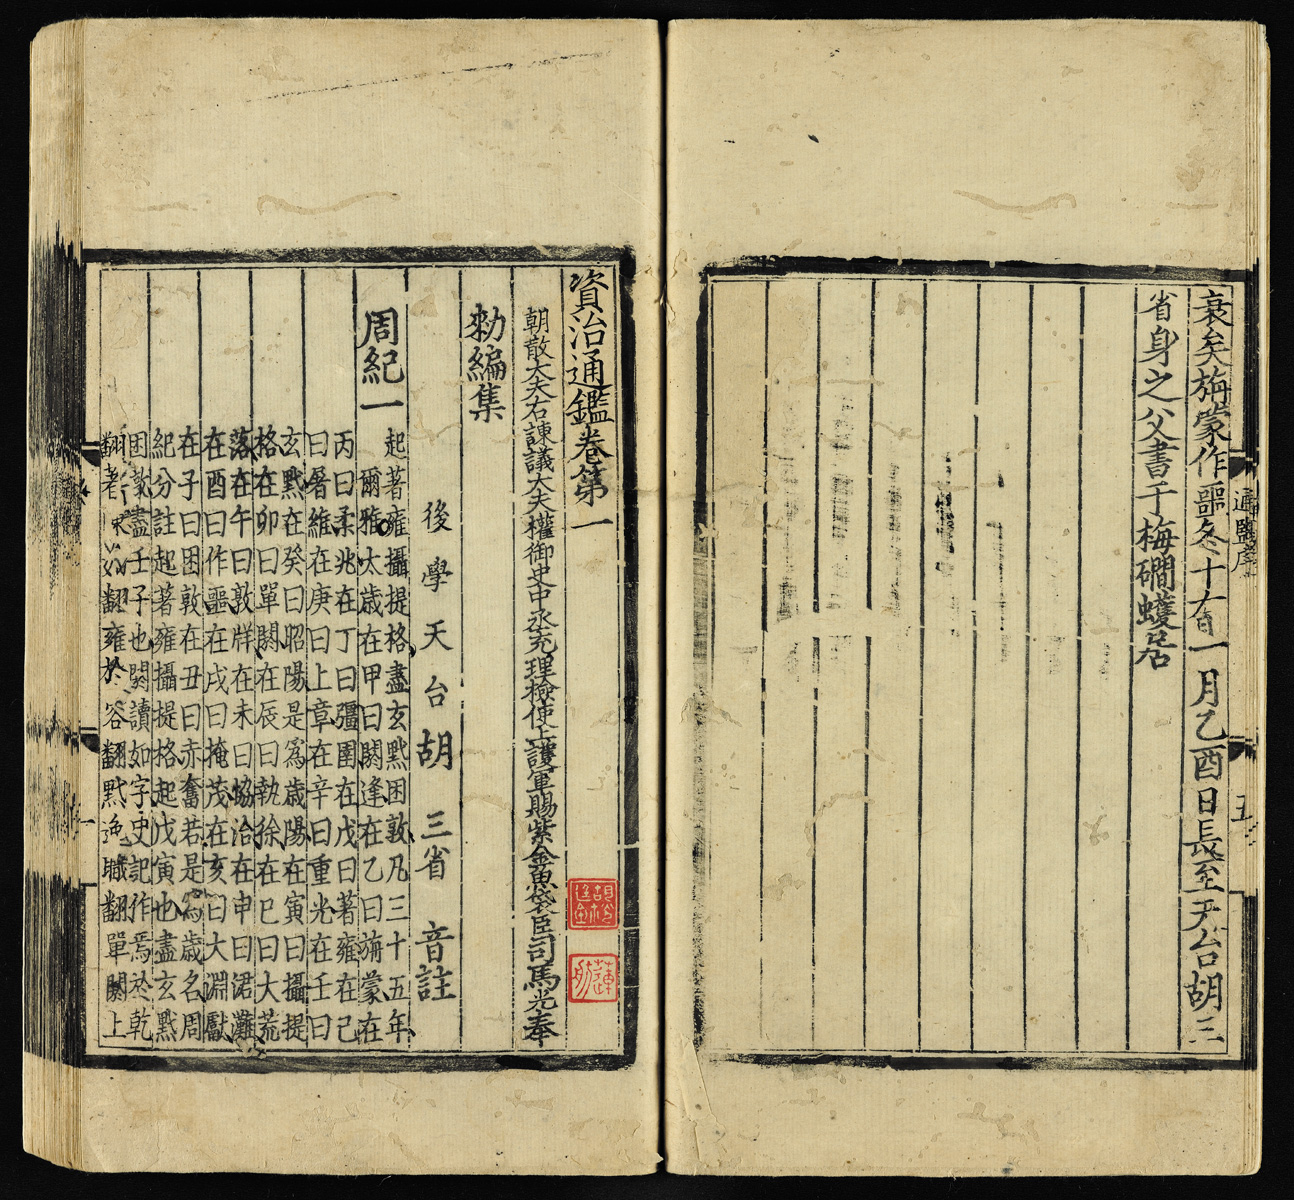 衰矣旃蒙作噩冬十有一月乙酉日長至天台胡三
省身之父書于梅磵蠖居
通鑑序
五
資治通鑑卷第一
朝散大夫右諫議大夫權御史中丞充理檢使上護軍賜紫金魚袋臣司馬光奉
勑編集
後學天台胡三省音註
周紀一
起著雍攝提格盡玄黓困敦凡三十五年
爾雅太歲在甲曰閼逢在乙曰旃蒙在
丙曰柔兆在丁曰彊圉在戊曰著雍在己
曰屠維在庚曰上章在辛曰重光在壬曰
玄黓在癸曰昭陽是爲歲陽在寅曰攝提
格在卯曰單閼在辰曰執徐在巳曰大荒
落在午曰敦牂在未曰協洽在申曰涒灘
在酉曰作噩在戌曰掩茂在亥曰大淵獻
在子曰困敦在丑曰赤奮若是爲歲名周
紀分註起著雍攝提格起戊寅也盡玄黓
困敦盡壬子也閼讀如字史記作焉於乾
翻著陳如翻雍於容翻黓逸職翻單閼上